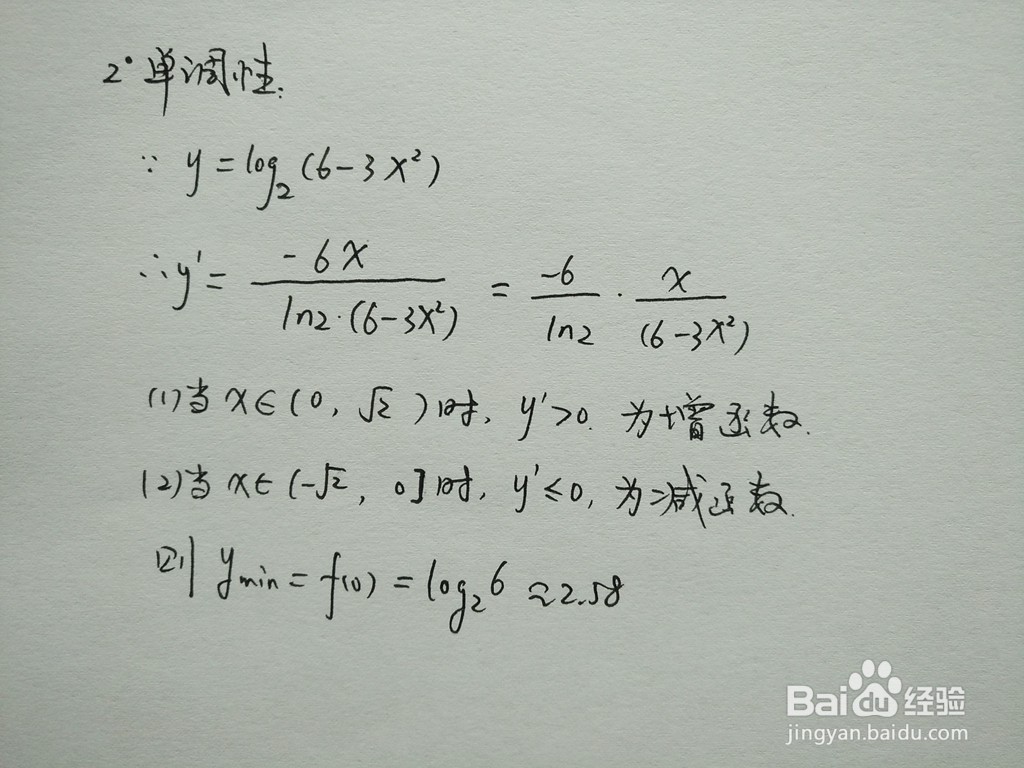 2°单调性:
∵ y=log₂(6-3x²)
∴y'= -6x / ln2·(6-3x²) = -6/ln2 · x/(6-3x²)
(1)当x∈(0,√2)时, y'>0. 为增函数.
(2)当x∈(-√2, 0]时, y'≤0, 为减函数.
则 ymin=f(0)=log₂6≈2.58
Baidu经验
jingyan.baidu.com